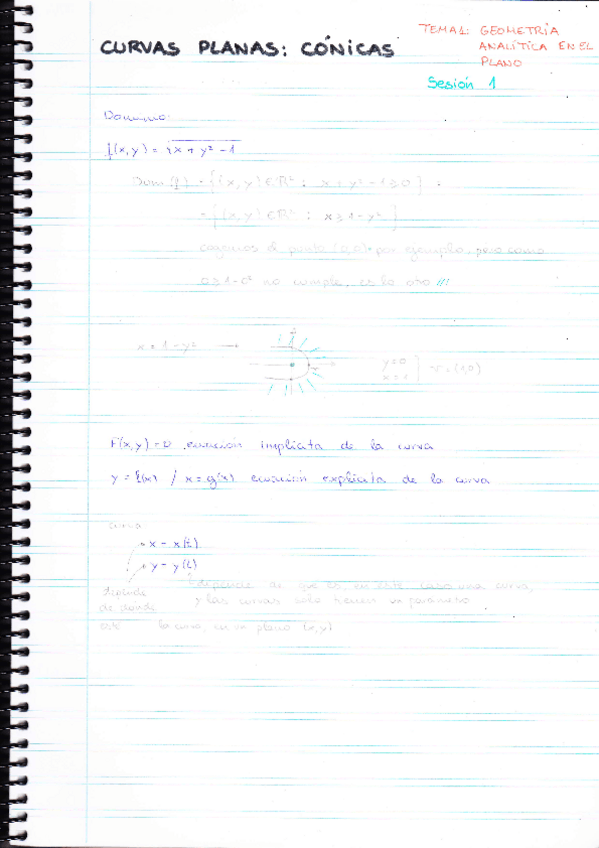 TEMA 1: GEOMETRÍA
ANALÍTICA EN EL
PLANO
CURVAS PLANAS: CÓNICAS
Sesión 1
Dominio:
f(x,y) = √x + y² - 1
Dom(f) = {(x,y) ∈ R² : x + y² - 1 ≥ 0} =
= {(x,y) ∈ R² : x ≥ 1 - y²}
cogemos el punto (0,0) por ejemplo, pero como
0 ≥ 1 - 0² no cumple, es lo otro !!!
x = 1 - y² →
y = 0
x = 1 } V = (1,0)
F(x,y) = 0 ecuación implícita de la curva
y = f(x) / x = g(x) ecuación explícita de la curva
curva
x = x(t)
y = y(t)
depende de que es, en este caso una curva,
y las curvas solo tienen un parámetro
depende
de donde
esté la curva, en un plano (x,y)